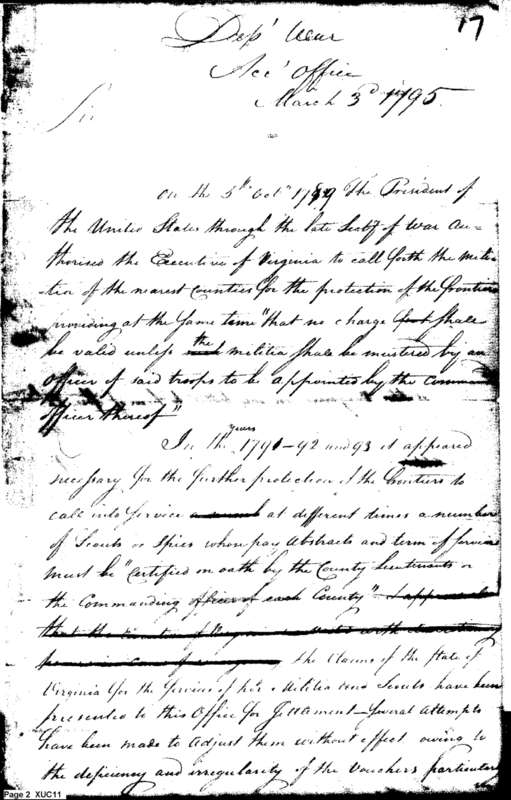 17
Dep' War
Acc' Office
March 3d 1795.
Sir
On the 5th Oct' 1789 The President of
the United States through the late Secty of War Au-
thorised the Executive of Virginia to call forth the mili
tia of the nearest Counties for the protection of the frontiers
providing at the same time "that no charge shall
be valid unless the militia shall be mustered by an
officer of said troops to be appointed by the Command
officer thereof"
In the years 1791-92 and 93 it appeared
necessary for the further protection of the frontiers to
call into service at different times a number
of Scouts or Spies whose pay Abstracts and term of Service
must be "Certified on oath by the County Lieutenants or
the Commanding officer of each County"
the Claims of the State of
Virginia for the Services of her Militia and Scouts have been
presented to this Office for Settlement - Several attempts
have been made to adjust them without effect owing to
the deficiency and irregularity of the Vouchers particularly
Page 2 XUC11